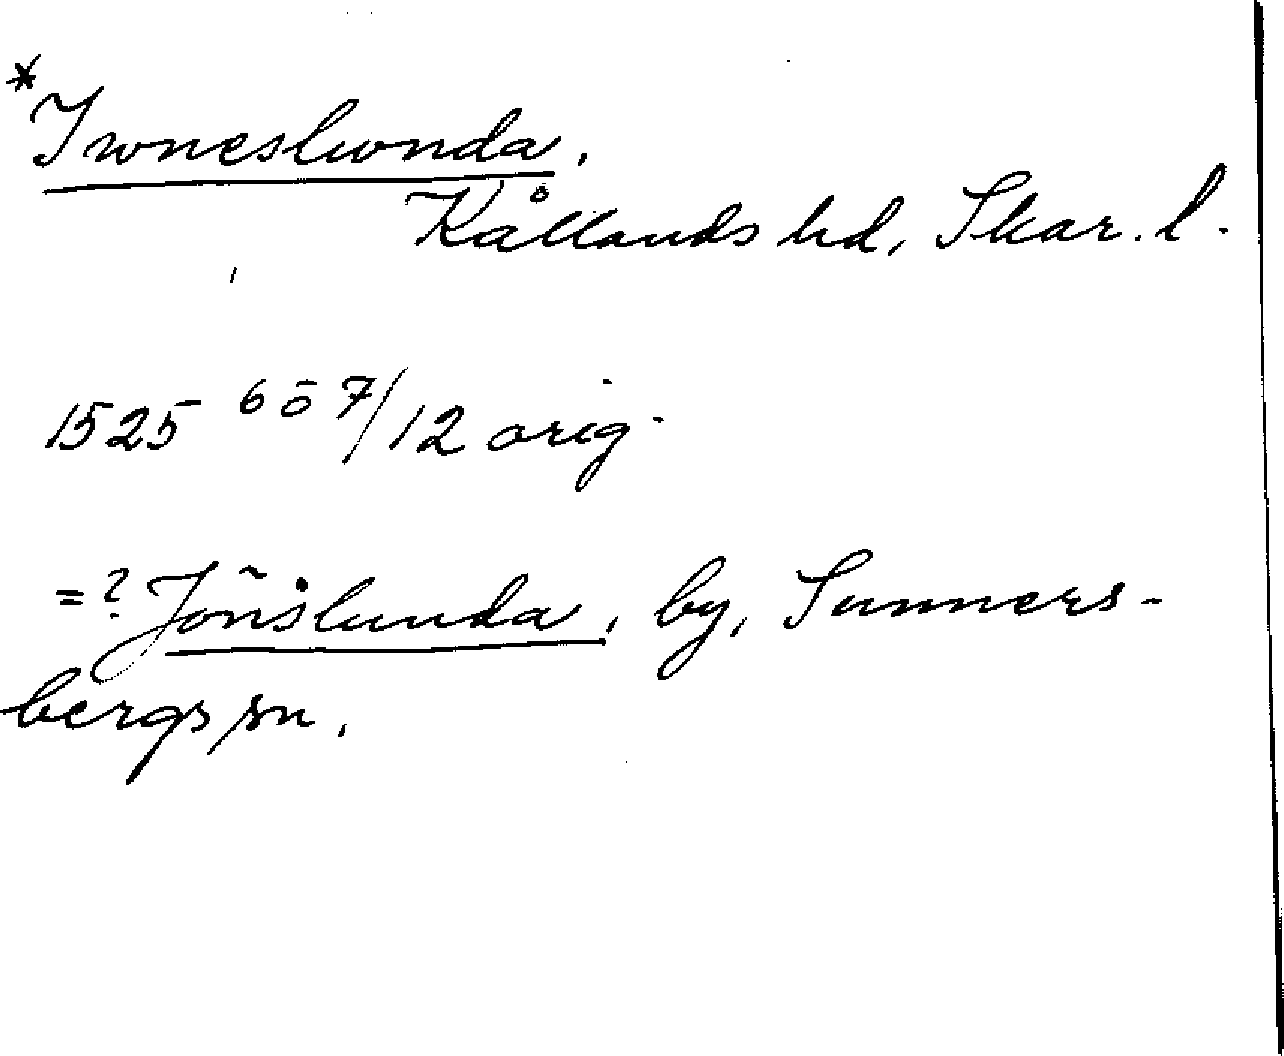 *Iwneslwnda.
Kållands hd, Skar. l.
1525 6ö 7/12 orig.
=? Jönslunda, by, Sunners-
bergs sn.